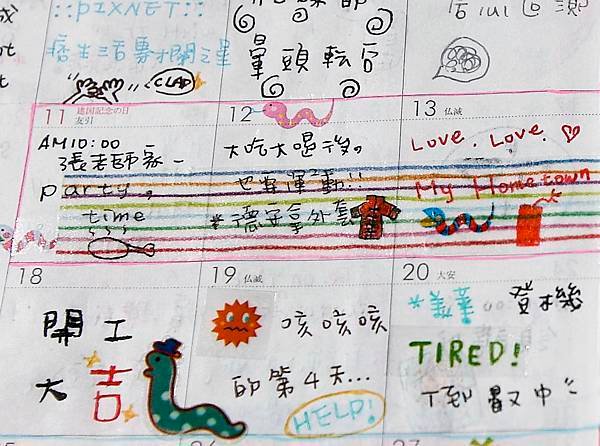 ::PIXNET::
痞生活專欄之星
CLAP
暈頭轉向
11 建国記念の日
友引
AM10:00
張老師家
party
time
12
大吃大喝後。
也要運動!!
拿外套
13 仏滅
Love. Love. ♡
My Hometown
18
開工
大吉
19 仏滅
咳咳咳
的第4天...
HELP!
20 大安
登機
TIRED!